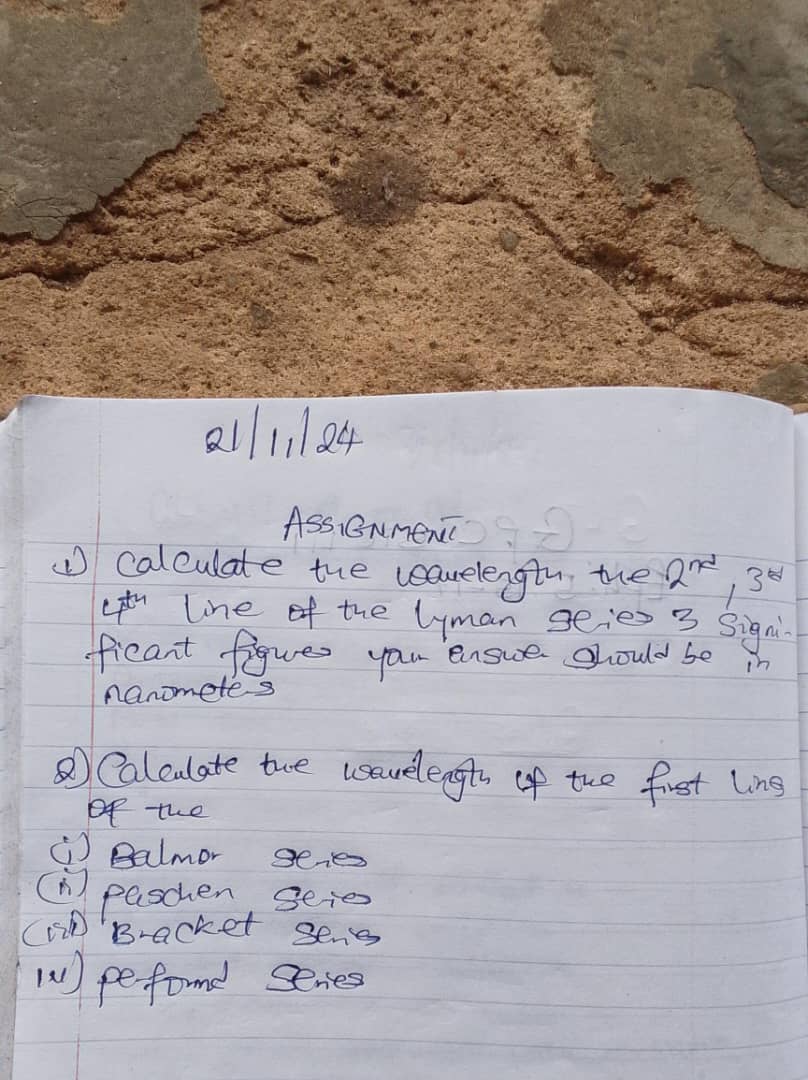 21/11/24
ASSIGNMENT
1) Calculate the wavelength, the 2nd, 3rd
4th line of the lyman series 3 Signi-
ficant figures your answer should be in
nanometers
2) Calculate the wavelength of the first line
of the
(i) Balmor series
(ii) paschen series
(iii) Bracket series
iv) pefound series